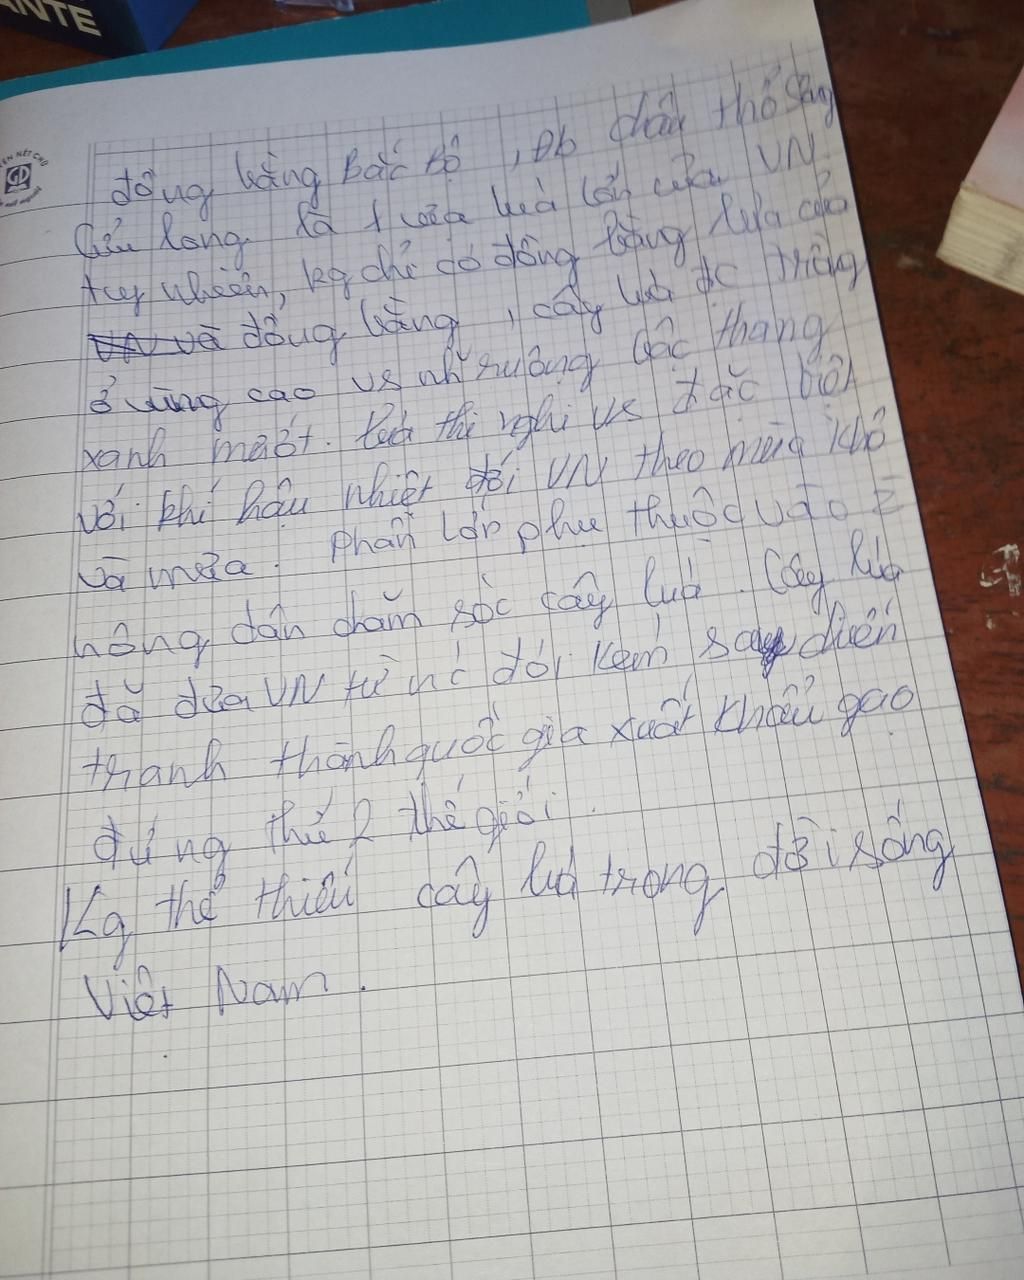 ANTE
GD
đồng bằng Bắc Bộ, Đb châu thổ Sông
Cửu Long là 1 vựa lúa lớn của VN.
tuy nhiên, kg chỉ có đồng bằng lúa của
đồng bằng, cây lúa đc trồng
ở vùng cao vs nh ruộng bậc thang
xanh mát. lúa thi nghi vs đặc biệt
với khí hậu nhiệt đới VN theo mùa khô
và mưa. phần lớn phụ thuộc vào
nông dân chăm sóc cây lúa. Cây lúa
đã đưa VN từ nc đói kém sang
thành quốc gia xuất khẩu gạo
đứng thứ 2 thế giới.
Kg thể thiếu cây lúa trong đời sống
Việt Nam.